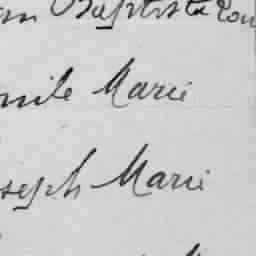 an Baptiste Lou
mile Marie
oseph Marie